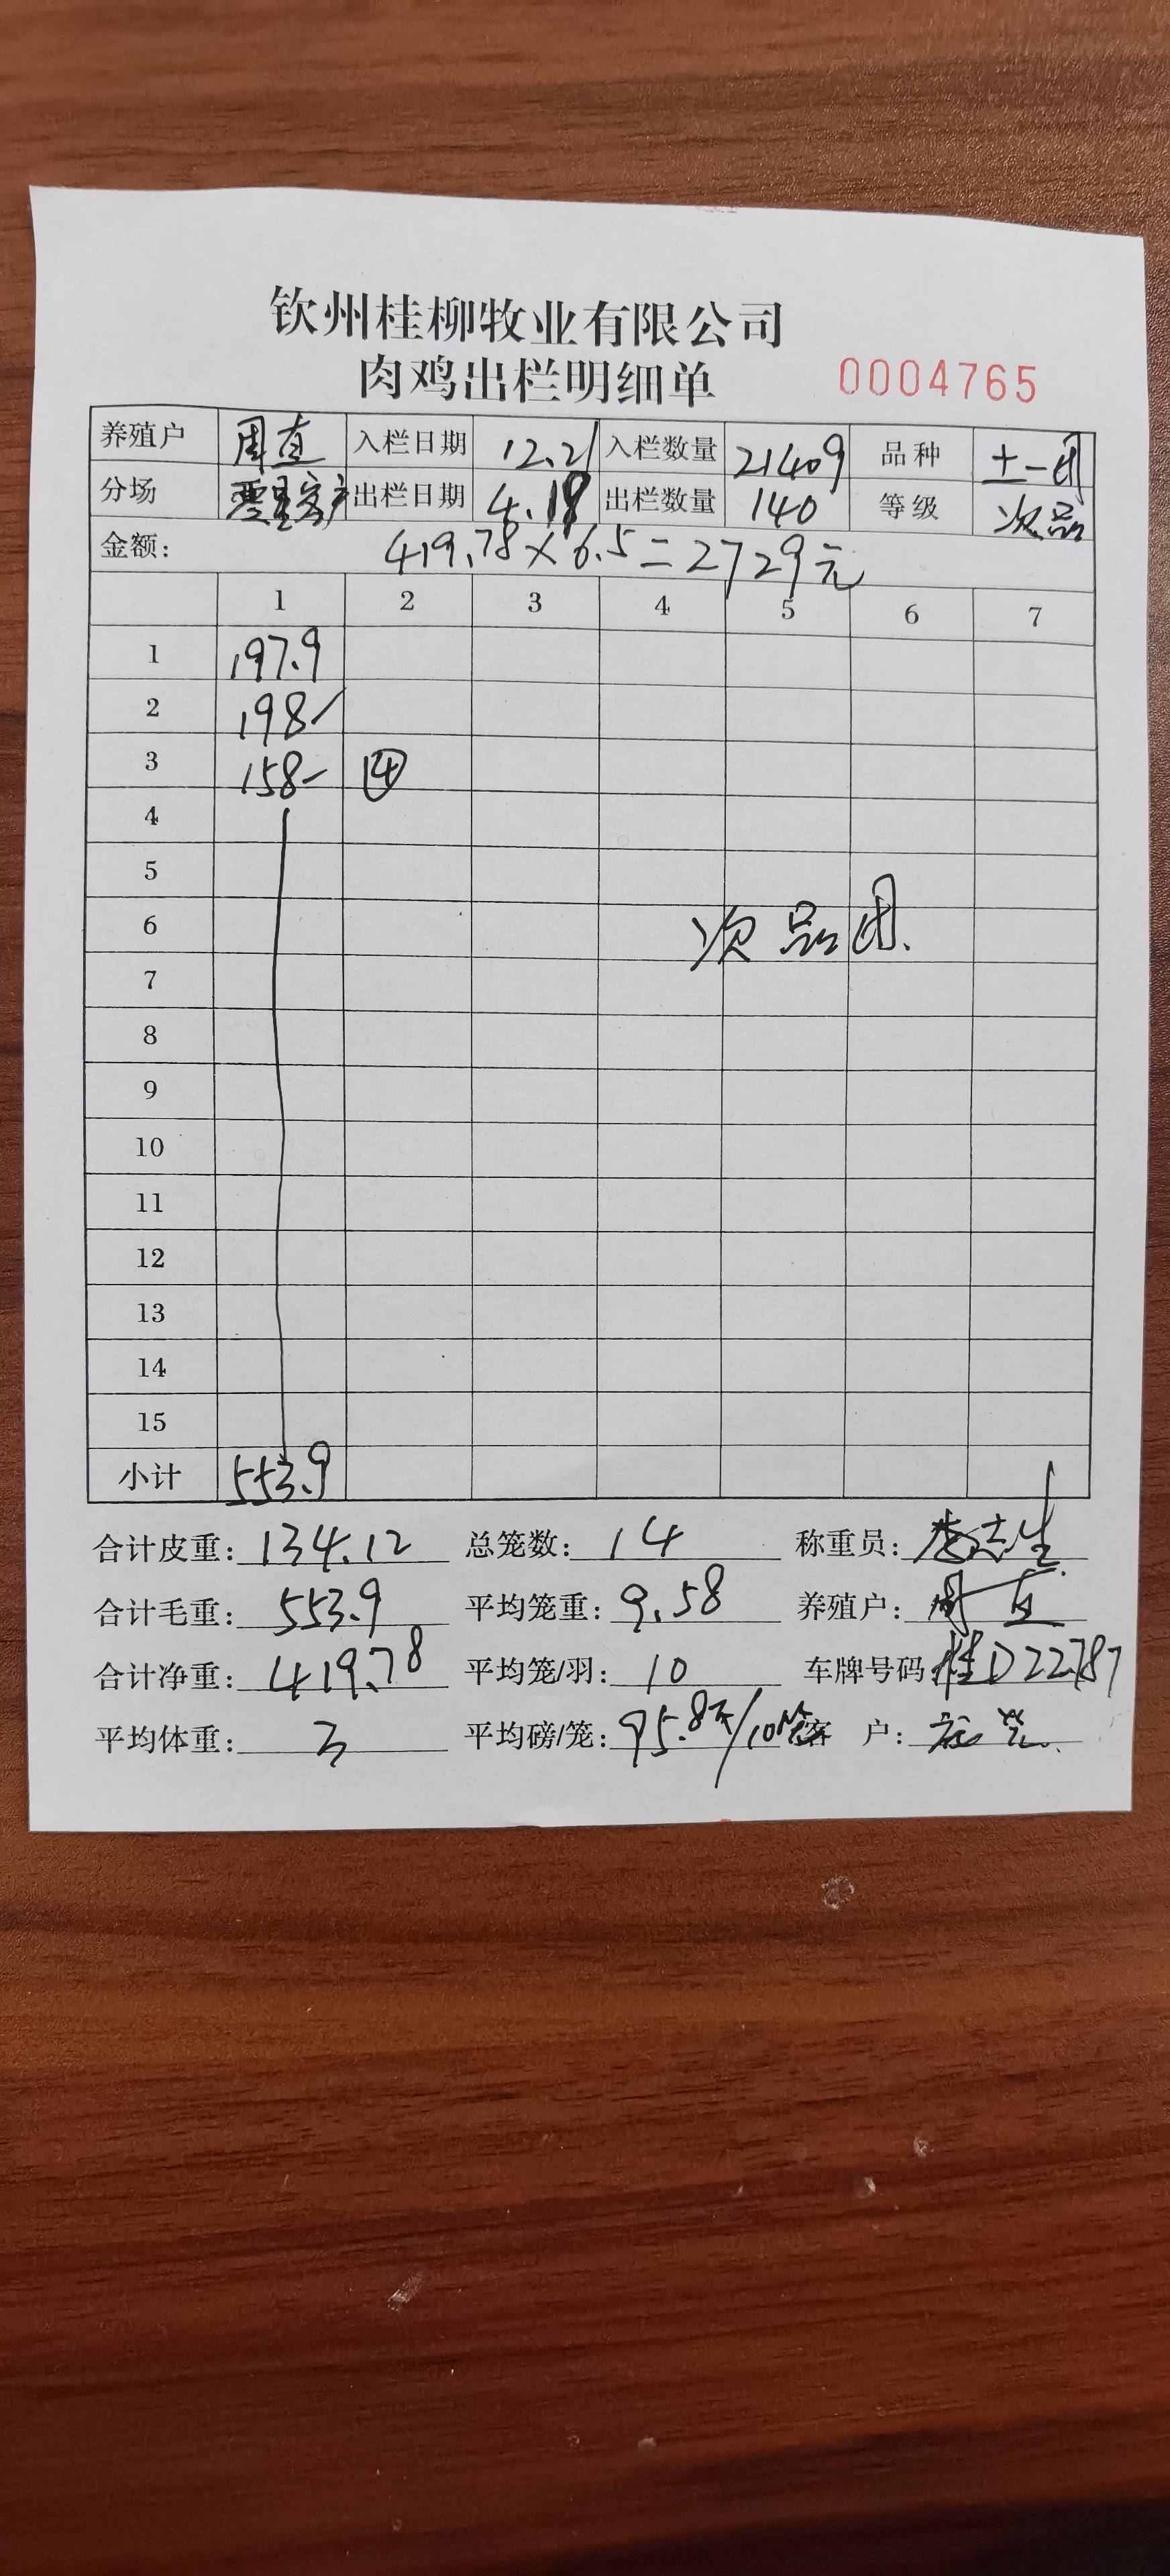 钦州桂柳牧业有限公司
肉鸡出栏明细单 0004765
养殖户 周直 入栏日期 12.21 入栏数量 21409 品种 土一
分场 出栏日期 4.19 出栏数量 140 等级 次品
金额: 419.78×6.5=2729元
1 2 3 4 5 6 7
1 197.9
2 198-
3 158- ⑭
4
5
6 次品
7
8
9
10
11
12
13
14
15
小计 553.9
合计皮重: 134.12 总笼数: 14 称重员: 李志生
合计毛重: 553.9 平均笼重: 9.58 养殖户: 周直
合计净重: 419.78 平均笼/羽: 10 车牌号码 桂D22787
平均体重: 3 平均磅/笼: 95.8斤/10个 客 户: